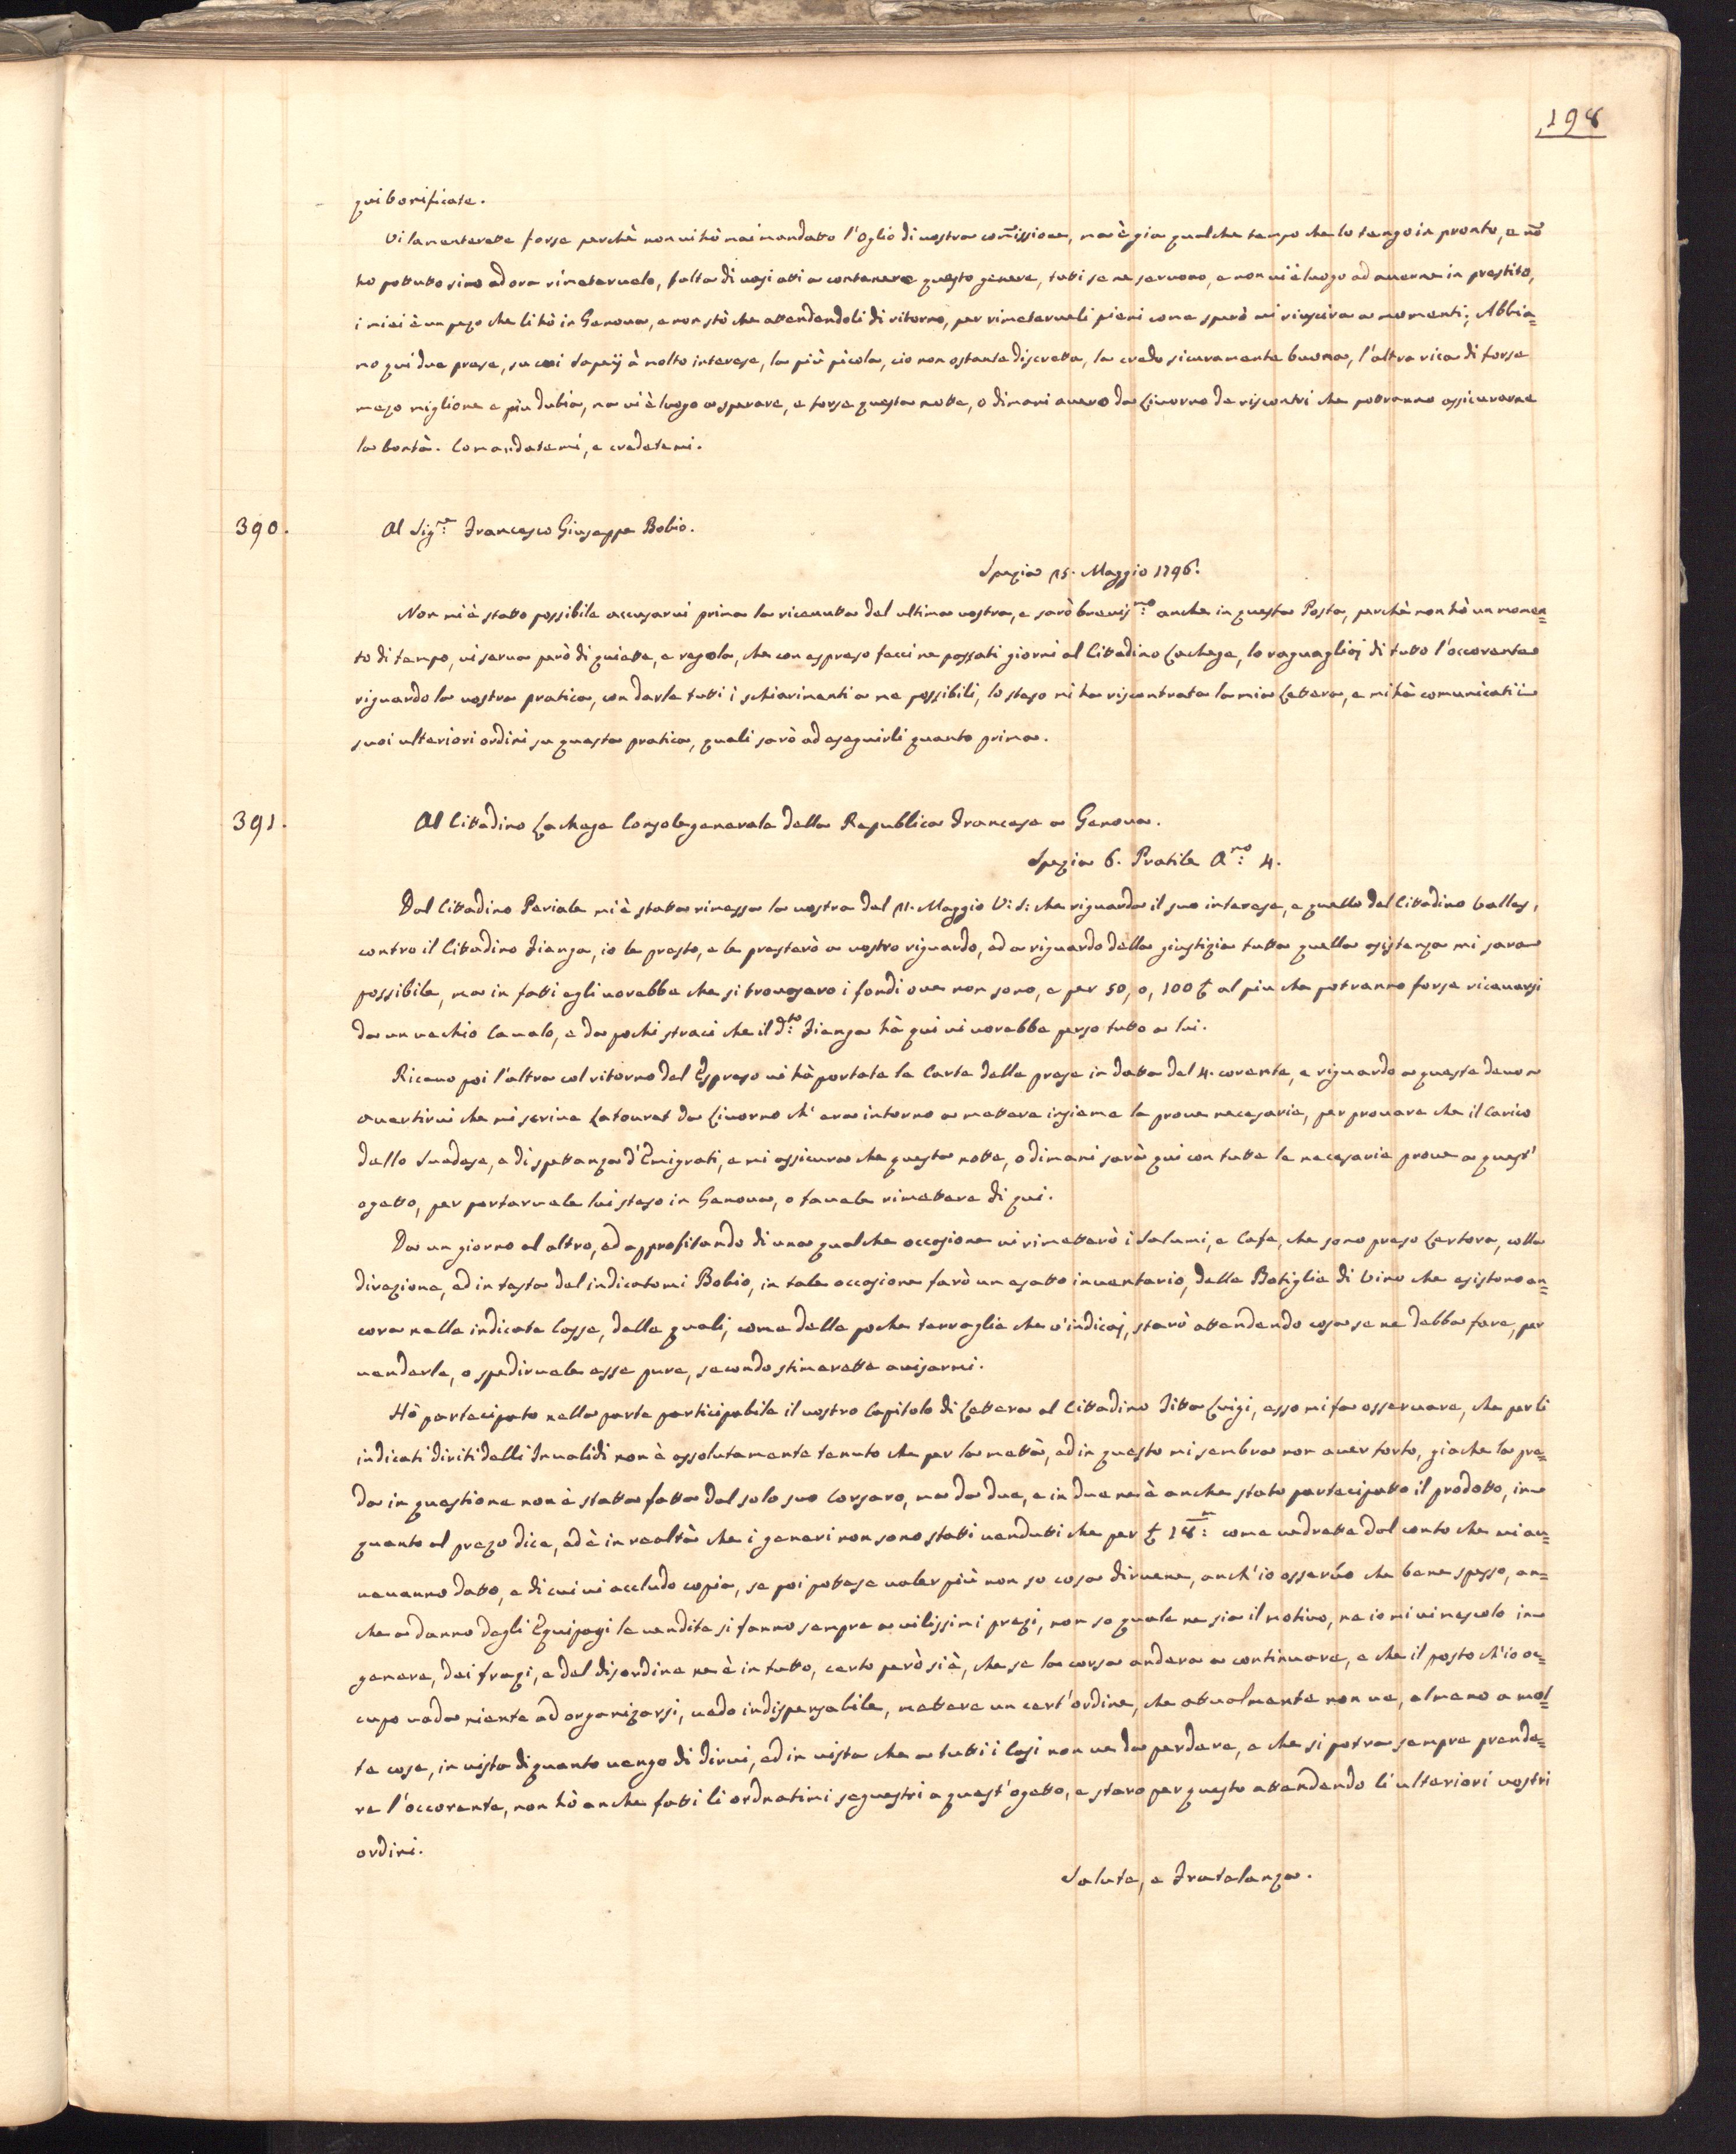 198
qui bonificate.
Vi lamenterete forse perchè non vi hò mai mandatto l'oglio di vostra com̃issione, ma è gia qualche tempo che lo tengo in pronto, e nõ
ho pottuto sino ad ora rimetervelo, falta di vasi atti a contenere questo genere, tutti se ne servono, e non vi è luogo ad averne in prestito,
i miei è un pezo che li hò in Genova, e non stò che attendendoli di ritorno, per rimeterveli pieni come sperò mi riuscira a momenti; Abbia=
mo qui due prese, su cui dapiij à molto interese, la più picola, cio non ostante discretta, la credo sicuramente buona, l'altra rica di forse
mezo miglione e più dubia, ma vi è luogo a sperare, e forse questa notte, o dimani avero da Livorno de riscontri che potranno assicurarne
la bontà. Comandatemi, e credetemi.
390. Al Sig.re Francesco Giuseppe Bobio.
Spezia 15. Maggio 1796.
Non mi è stato possibile accusarvi prima la ricevuta del ultima vostra, e sarò brevis.mo anche in questa Posta, perchè non hò un momen=
to di tempo, vi serva però di quiette, e regola, che con espreso feci ne passati giorni al Cittadino Lachege, lo raguagliai di tutto l'occorente
riguardo la vostra pratica, con darle tutti i schiarimenti a me possibili, lo steso mi ha riscontrata la mia Lettera, e mi hà comunicati i
suoi ulteriori ordini su questa pratica, quali sarò ad eseguirli quanto prima.
391. Al Cittadino Lachege Console generale della Republica Francese a Genova.
Spezia 6. Pratile A.no 4.
Dal Cittadino Periale mi è stata rimessa la vostra del 21. Maggio V: S: che riguarda il suo interese, e quello del Cittadino Valles,
contro il Cittadino Fienga, io le presto, e le presterò a vostro riguardo, ed a riguardo della giustizia tutta quella asistenza mi sara
possibile, ma in fatti egli vorebbe che si trovasero i fondi ove non sono, e per 50, o, 100 £ al piu che potranno forse ricavarsi
da un vechio Cavalo, e da pochi straci che il d.to Fienga hà qui vi vorebbe perso tutto a lui.
Ricevo poi l'altra col ritorno del Espreso vi hà portate le Carte delle prese in datta del 4. corente, e riguardo a queste devo
avertirvi che mi scrive Latouret da Livorno ch'era intorno a mettere insieme le prove necesarie, per provare che il Carico
dello Suedese, e di spettanza d'Emigrati, e mi assicura che questa notte, o dimani sarà qui con tutte le necesarie prove a quest'
ogetto, per portarvele lui steso in Genova, o favele rimettere di qui.
Da un giorno al altro, ed approfitando di una qualche occasione vi rimetterò i Salumi, e Cafe, che sono preso Lertora, colla
direzione, ed in testa del indicatomi Bobio, in tale occasione farò un esatto inventario, delle Botiglie di Vino che esistono an=
cora nelle indicate Casse, delle quali, come delle poche terraglie che v'indicai, starò attendendo cosa se ne debba fare, per
venderle, o spedirvele esse pure, secondo stimerette avisarmi.
Hò partecipato nella parte participabile il vostro Capitolo di Lettera al Cittadino Fitta Luigi, esso mi fa osservare, che per li
indicati diriti delli Invalidi non è assolutamente tenuto che per la mettà, ed in questo mi sembra non aver torto, giache la pre=
da in questione non è statta fatta dal solo suo Corsaro, ma da due, e in due ne è anche stato partecipatto il prodotto, in
quanto al prezo dice, ed è in realtà che i generi non sono stati vendutti che per £ 18:m come vedrette dal conto che mi av=
vevanno datto, e di cui vi accludo copia, se poi pottese valer più non so cosa dirvene, anch'io osservo che bene spesso, an=
che a danno degli Equipagi le vendite si fanno sempre a vilissimi prezi, non so quale ne sia il motivo, ne io mi vi mescolo in
genere, dei frazi, e del disordine ne è in tutto, certo però si è, che se la corsa andera a continuare, e che il posto ch'io oc=
cupo vada niente ad organizarsi, vedo indispensabile, mettere un cert'ordine, che attualmente non ve, almeno a mol=
te cose, in vista di quanto vengo di dirvi, ed in vista che a tutti i Casi non ve da perdere, e che si potra sempre prende=
re l'occorente, non hò anche fatti li ordnatimi sequestri a quest'ogetto, e staro per questo attendendo li ulteriori vostri
ordini.
Salute, e Fratelanza.